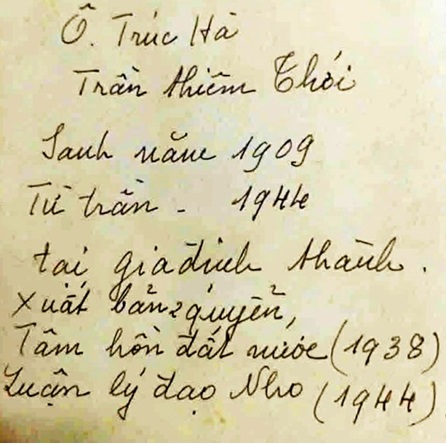 Ô. Trúc Hà
Trần Thiêm Thới
Sanh năm 1909
Từ trần - 1944
tại gia đình thành.
Xuất bản 2 quyển,
Tâm hồn đất nước (1938)
Luận lý đạo Nho (1944)